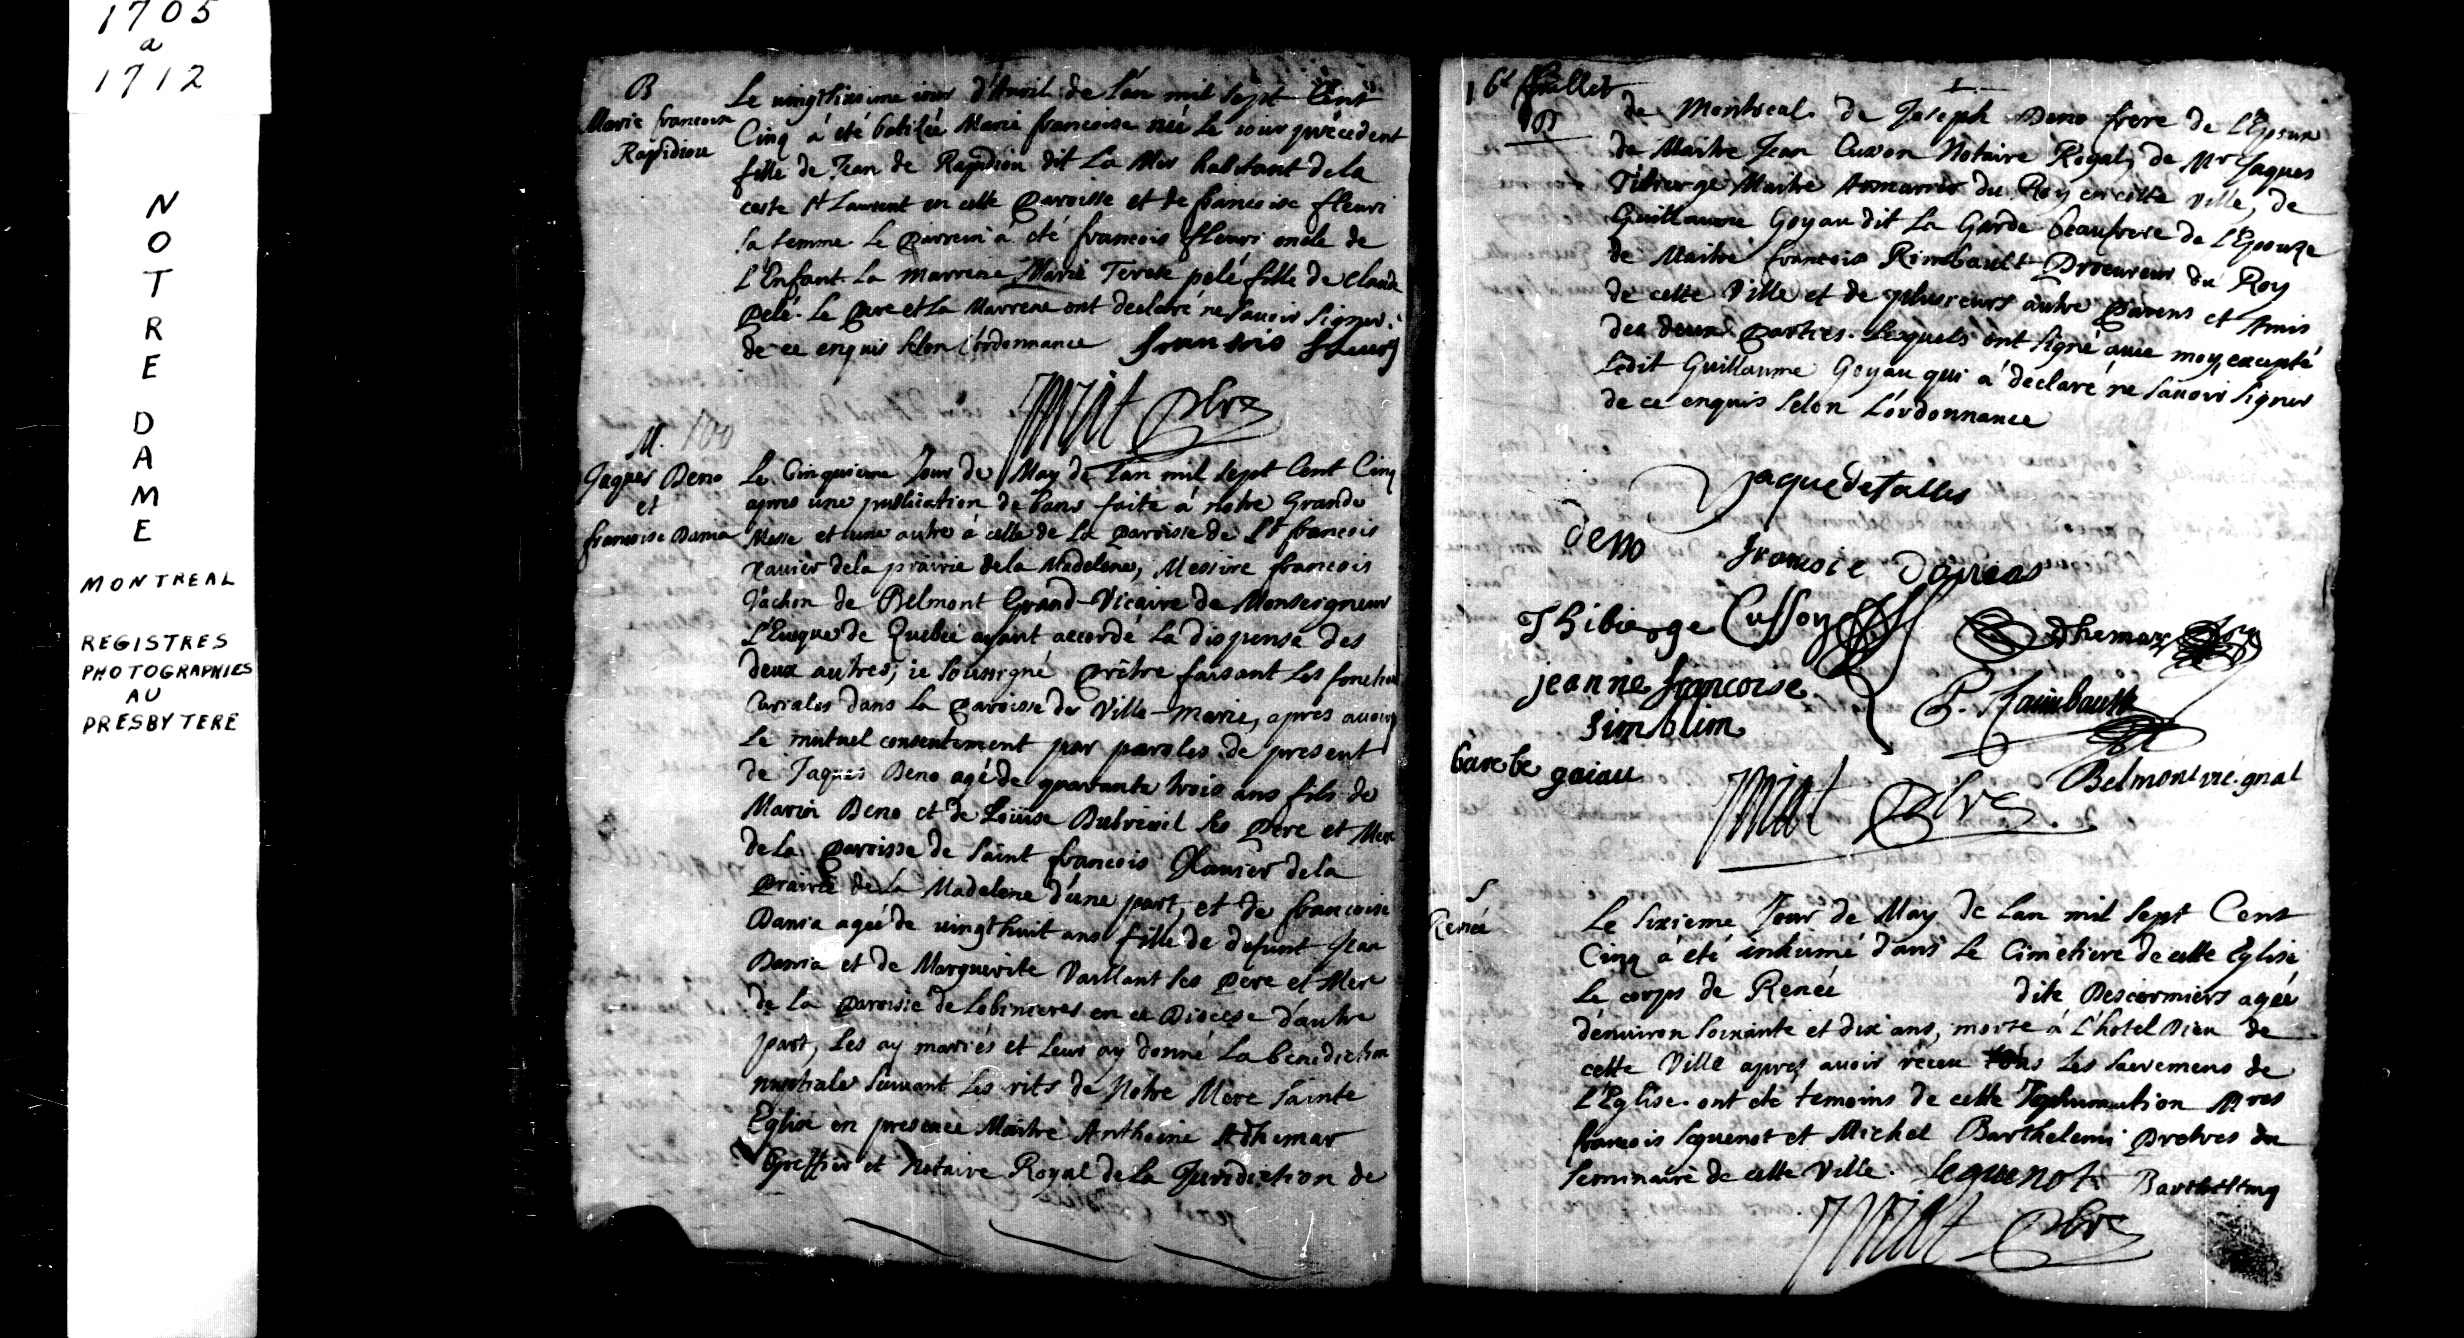 1705
a
1712
NOTRE DAME
MONTREAL
REGISTRES
PHOTOGRAPHIES
AU
PRESBYTERE
B
Marie francoise
Rapidiou
Le vingttixime iour d'Avril de l'an mil sept Cent
Cinq à été batisée Marie francoise née le iour précedent
fille de Jean de Rapidiou dit La Mer habitant de la
coste St Laurent en cette Paroisse et de francoise fleuri
sa femme. Le Parrein à été francois fleuri oncle de
l'Enfant. La marrene Marie Terese pelé fille de claude
Pelé. Le Pere et La Marrene ont declaré ne savoir signer
de ce enquis selon l'ordonnance fransois fleury
Priat Pbre
M. 100
Jaques Deno
et
francoise Dania
Le Cinquieme Jour de May de l'an mil sept Cent Cinq
apres une publication de bans faite à nôtre Grande
Messe et une autre à celle de La Paroisse de St francois
xavier de la prairie de la Madelene, Messire francois
Vachon de Belmont Grand-Vicaire de Monseigneur
L'Eveque de Quebec ayant accordé La dispense des
deux autres, ie soussigné Prêtre faisant Les fonctions
Curiales dans La Paroisse de Ville-Marie, apres avoir
Le mutuel consentement par paroles de present
de Jaques Deno agé de quarante trois ans fils de
Marin Deno et de Loüise Dubreuil ses Pere et Mere
de la Paroisse de Saint francois Xavier de la
Prairie de la Madelene d'une part, et de francoise
Dania agée de vingthuit ans fille de defunt Jean
Dania et de Marguerite Vaillant ses Pere et Mere
de La Paroisse de Lobinieres en ce Diocese d'autre
part, Les ay mariés et Leur ay donné La benediction
nuptiale suivant Les rits de Nôtre Mere Sainte
Eglise en presence Maitre Anthoine Adhemar
Greffier et Notaire Royal de la Juridiction de
16e fullet
de Montreal. de Joseph Deno frere de L'Epoux
de Maitre Jean Cusson Notaire Royal, de Mr Jaques
Tibierge Maitre Armurier du Roy en cette Ville, de
Guillaume Goyau dit La Garde beaufrere de L'Epouze
de Maitre francois Rimbault Procureur du Roy
de cette Ville et de plusieurs autre Parens et Amis
des deux Parties. Lesquels ont signé avec moy, excepté
Ledit Guillaume Goyau qui à declaré ne savoir signer
de ce enquis selon L'ordonnance
jaque detalles
deno fransoise danias
Thibierge Cusson Adhemar
jeanne francoise P. Raimbault
simblin
barbe goiau Belmont vic. gnal
Priat Pbre
S
Renée
Le sixieme Jour de May de Lan mil sept Cent
Cinq à été inhumé dans Le Cimetiere de cette Eglise
Le corps de Renée dite Descormiers agée
d'environ soixante et dix ans, morte à L'hotel Dieu de
cette Ville apres avoir réceu tous Les sacremens de
L'Eglise. ont été temoins de cette Inhumation Mres
francois seguenot et Michel Barthelemi Pretres du
Seminaire de cette Ville. Seguenot Barthelemy
Priat Pbre